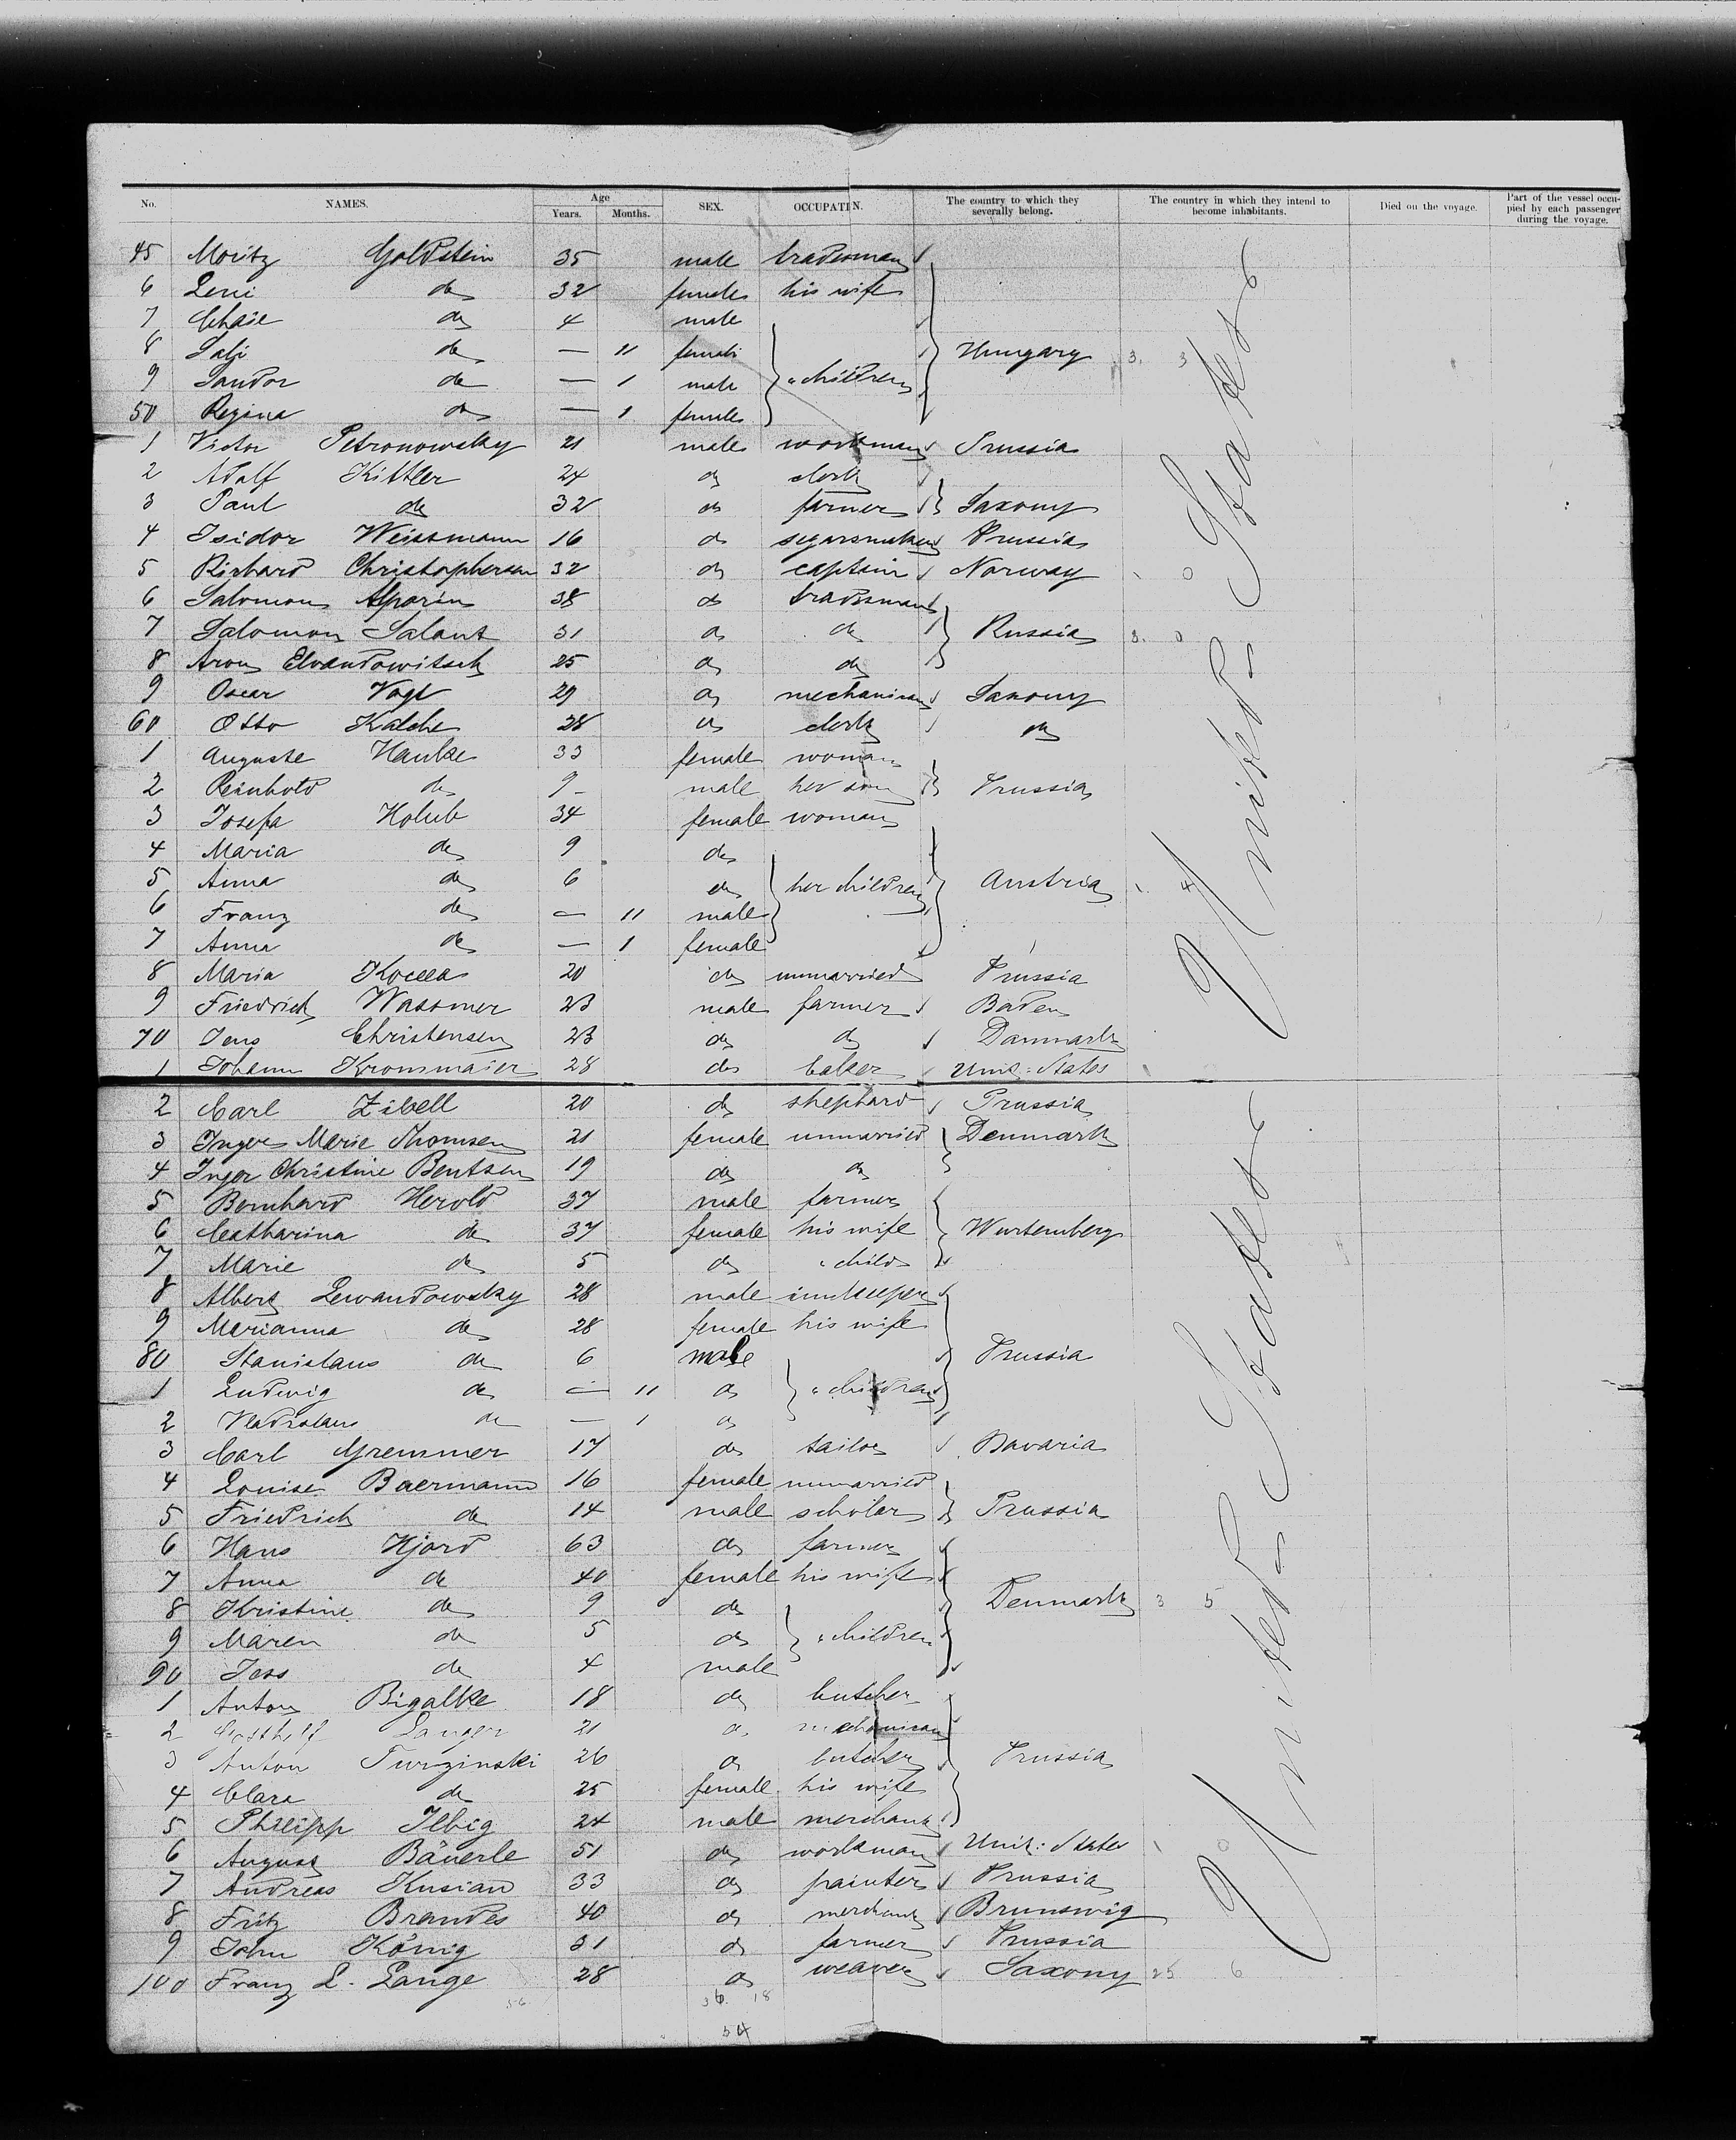 No. NAMES. Age Years. Months. SEX. OCCUPATIN. The country to which they severally belong. The country in which they intend to become inhabitants. Died on the voyage. Part of the vessel occupied by each passenger during the voyage.
45 Moritz Goldstein 35 male tradesman
6 Leni do 32 female his wife
7 Chaie do 4 male
8 Sali do — 11 female Hungary 3. 3
9 Sandor do — 1 male " children
50 Regina do — 1 female
1 Victor Petronowsky 21 male workman Prussia
2 Adolf Kittler 24 do clerk
3 Paul do 32 do farmer Saxony
4 Isidor Weissmann 16 do segarsmaker Prussia
5 Richard Christophersen 32 do captain Norway 1 0
6 Salomon Alparin 38 do tradesman
7 Salomon Salant 31 do do Russia 3. 0
8 Aron Elvandowitsch 25 do do
9 Oscar Vogt 29 do mechanican Saxony
60 Otto Kalche 28 do clerk do
1 Auguste Hanke 33 female woman
2 Reinhold do 9 - male her son Prussia
3 Josefa Holub 34 female woman
4 Maria do 9 do
5 Anna do 6 do her children Austria 1. 4
6 Franz do — 11 male
7 Anna do — 1 female
8 Maria 20 do unmarried Prussia
9 Friedrich Wassmer 23 male farmer Baden
70 Jens Christensen 23 do do Danmark
1 Johann Kronsmaier 28 do baker Unit: States
United States
2 Carl Zibell 20 do shephard Prussia
3 Inger Marie Thomsen 21 female unmarried Denmark
4 Inger Christine Bentsen 19 do do
5 Bernhard Herold 37 male farmer
6 Catharina do 37 female his wife Wurtemberg
7 Marie do 5 do " child
8 Albert Lewandowsky 28 male innkeeper
9 Marianna do 28 female his wife
80 Stanislaus do 6 male Prussia
1 Ludwig do — 11 do " children
2 Vladislaus do — 1 do
3 Carl Gremmer 17 do tailor Bavaria
4 Louise Baermann 16 female unmarried
5 Friedrich do 14 male scholar Prussia
6 Hans Hjord 63 do farmer
7 Anna do 40 female his wife
8 Kristine do 9 do Denmark 3 5
9 Maren do 5 do " children
90 Jess do 4 male
1 Anton Bigalke 18 do butcher
2 Gotthelf Langer 21 do mechanican
3 Anton Turzinski 26 do butcher Prussia
4 Clara do 25 female his wife
5 Philipp Ilbig 24 male merchant
6 August Bäuerle 51 do workman Unit: States 1 0
7 Andreas Kusian 33 do painter Prussia
8 Fritz Brandes 40 do merchant Brunswig
9 John König 31 do farmer Prussia
100 Franz L. Lange 28 do weaver Saxony 25 6
United States
56 36 18
54